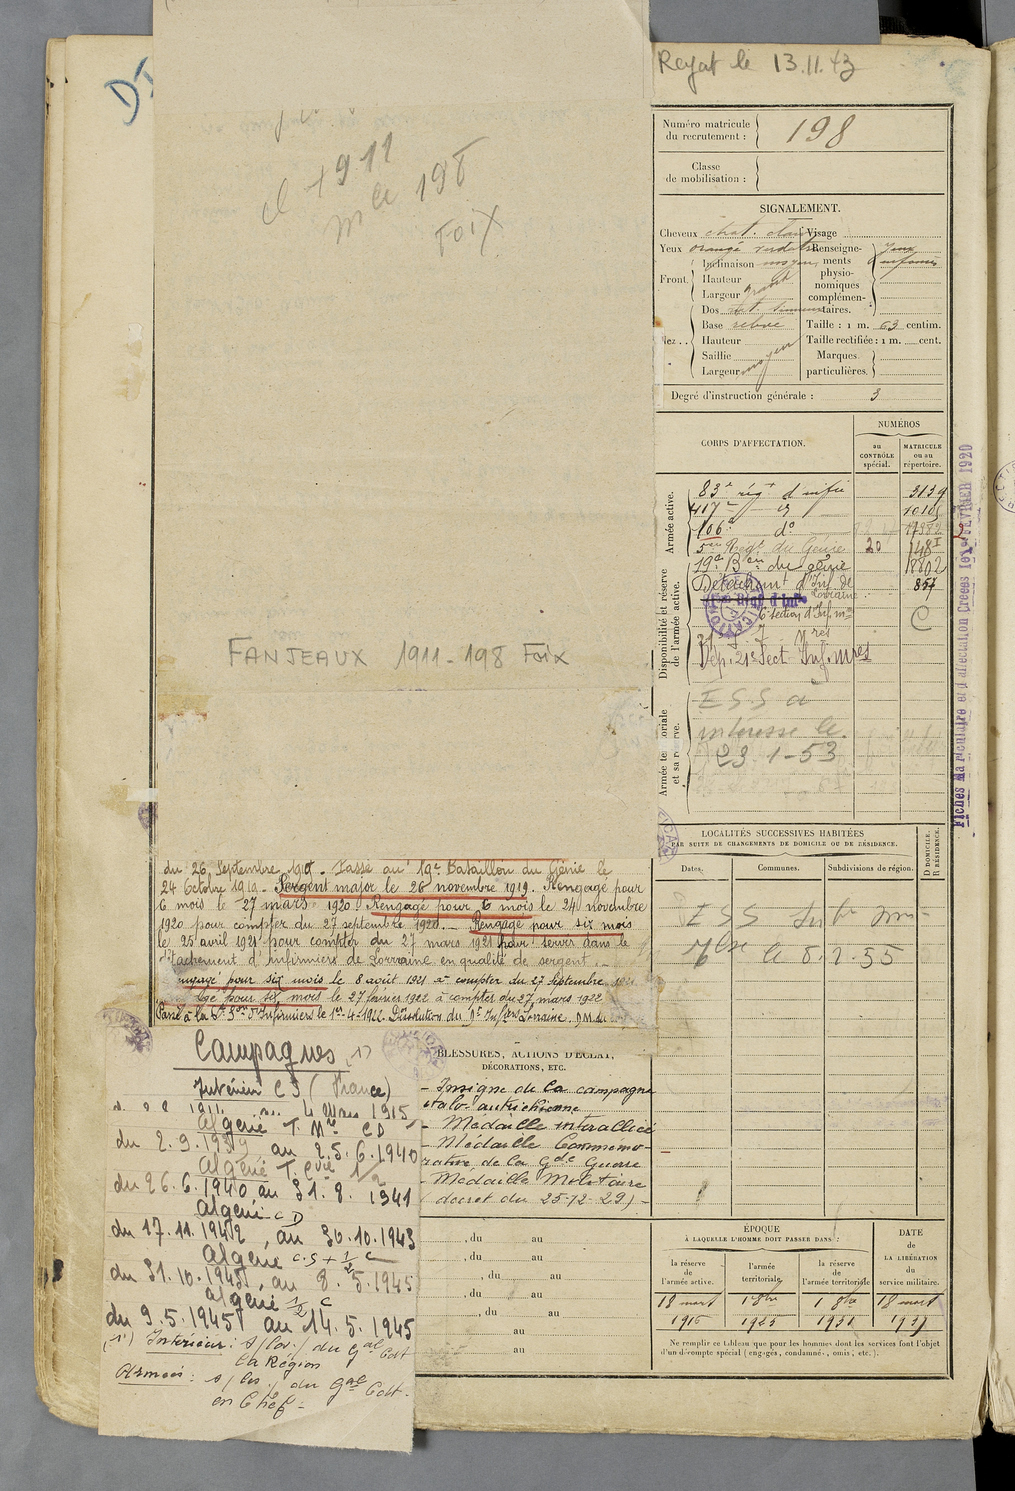 Royat le 13.11.43
Numéro matricule
du recrutement : 198
Classe
de mobilisation :
Cl 1911
Mle 198
Foix
SIGNALEMENT.
Cheveux chat. clair Visage
Yeux orangé verdâtre Renseigne-
ments
physio-
nomiques
complémen-
taires.
Yeux
enfoncés
Front.
Inclinaison moyen
Hauteur
Largeur grand
Dos
Base relevé
Hauteur
Saillie
Largeur moyen
Taille : 1 m. 63 centim.
Taille rectifiée : 1 m. cent.
Marques
particulières.
Degré d'instruction générale : 3
CORPS D'AFFECTATION.
NUMÉROS
au
CONTRÔLE
spécial.
MATRICULE
ou au
répertoire.
Armée active.
83e régt d'infie 3139
417e d° 10105
106e d°
5me Régt du Génie 20
19e Bon du génie 18802
Disponibilité et réserve
de l'armée active.
Détachemt d'Inf. de Lorraine 857
6e section d'Inf.mres
Dép. 21e Sect. Inf. mres
FANJEAUX 1911-198 Foix
Armée territoriale
et sa réserve.
ESS a
intéressé le
23-1-53
Fiches Matriculaire et d'affectation Créées le 1er FÉVRIER 1920
LOCALITÉS SUCCESSIVES HABITÉES
PAR SUITE DE CHANGEMENTS DE DOMICILE OU DE RÉSIDENCE.
Dates.
Communes.
Subdivisions de région.
D DOMICILE.
R RÉSIDENCE.
ESS
a 8.2.55
du 26 Septembre 1919. Passé au 19e Bataillon du Génie le
24 Octobre 1919. Sergent major le 26 novembre 1919. Rengagé pour
6 mois le 27 mars 1920. Rengagé pour 6 mois le 24 novembre
1920 pour compter du 27 septembre 1920. Rengagé pour six mois
le 25 avril 1921 pour compter du 27 mars 1921 pour servir dans le
détachement d'Infirmiers de Lorraine en qualité de sergent.
engagé pour six mois le 8 août 1921 à compter du 27 septembre 1921
gé pour six mois le 27 février 1922 à compter du 27 mars 1922
Passé à la 6e Son d'Infirmiers le 1er-4-1922. Dissolution du Dt Infers Lorraine.
Campagnes (1)
Intérieur CS (France)
4 Mars 1915
Algérie T. Mre CD
du 2.9.1939 au 25.6.1940
Algérie T. Cvie 1/2
du 26.6.1940 au 31.8.1941
Algérie CD
du 17.11.1942 au 30.10.1943
Algérie C.S + 1/2 C
du 31.10.1943 au 8.5.1945
Algérie 1/2 C
du 9.5.1945 au 14.5.1945
(1) Intérieur : s/cor. du Gal Cdt
la Région
Armées : s/cor. du Gal Cdt.
en Chef.
BLESSURES, ACTIONS D'ÉCLAT,
DÉCORATIONS, ETC.
- Insigne de la campagne
italo-autrichienne
- Médaille interalliée
- Médaille Commémo-
rative de la Gde Guerre
- Médaille Militaire
(décret du 25-12-29) -
, du au
, du au
, du au
, du au
, du au
au
au
ÉPOQUE
À LAQUELLE L'HOMME DOIT PASSER DANS :
la réserve
de
l'armée active.
l'armée
territoriale
la réserve
de
l'armée territoriale
DATE
de
LA LIBÉRATION
du
service militaire.
18 mars 1 8bre 1 8bre 18 mars
1915 1925 1931 1937
Ne remplir ce tableau que pour les hommes dont les services font l'objet
d'un décompte spécial (engagés, condamnés, omis, etc.).